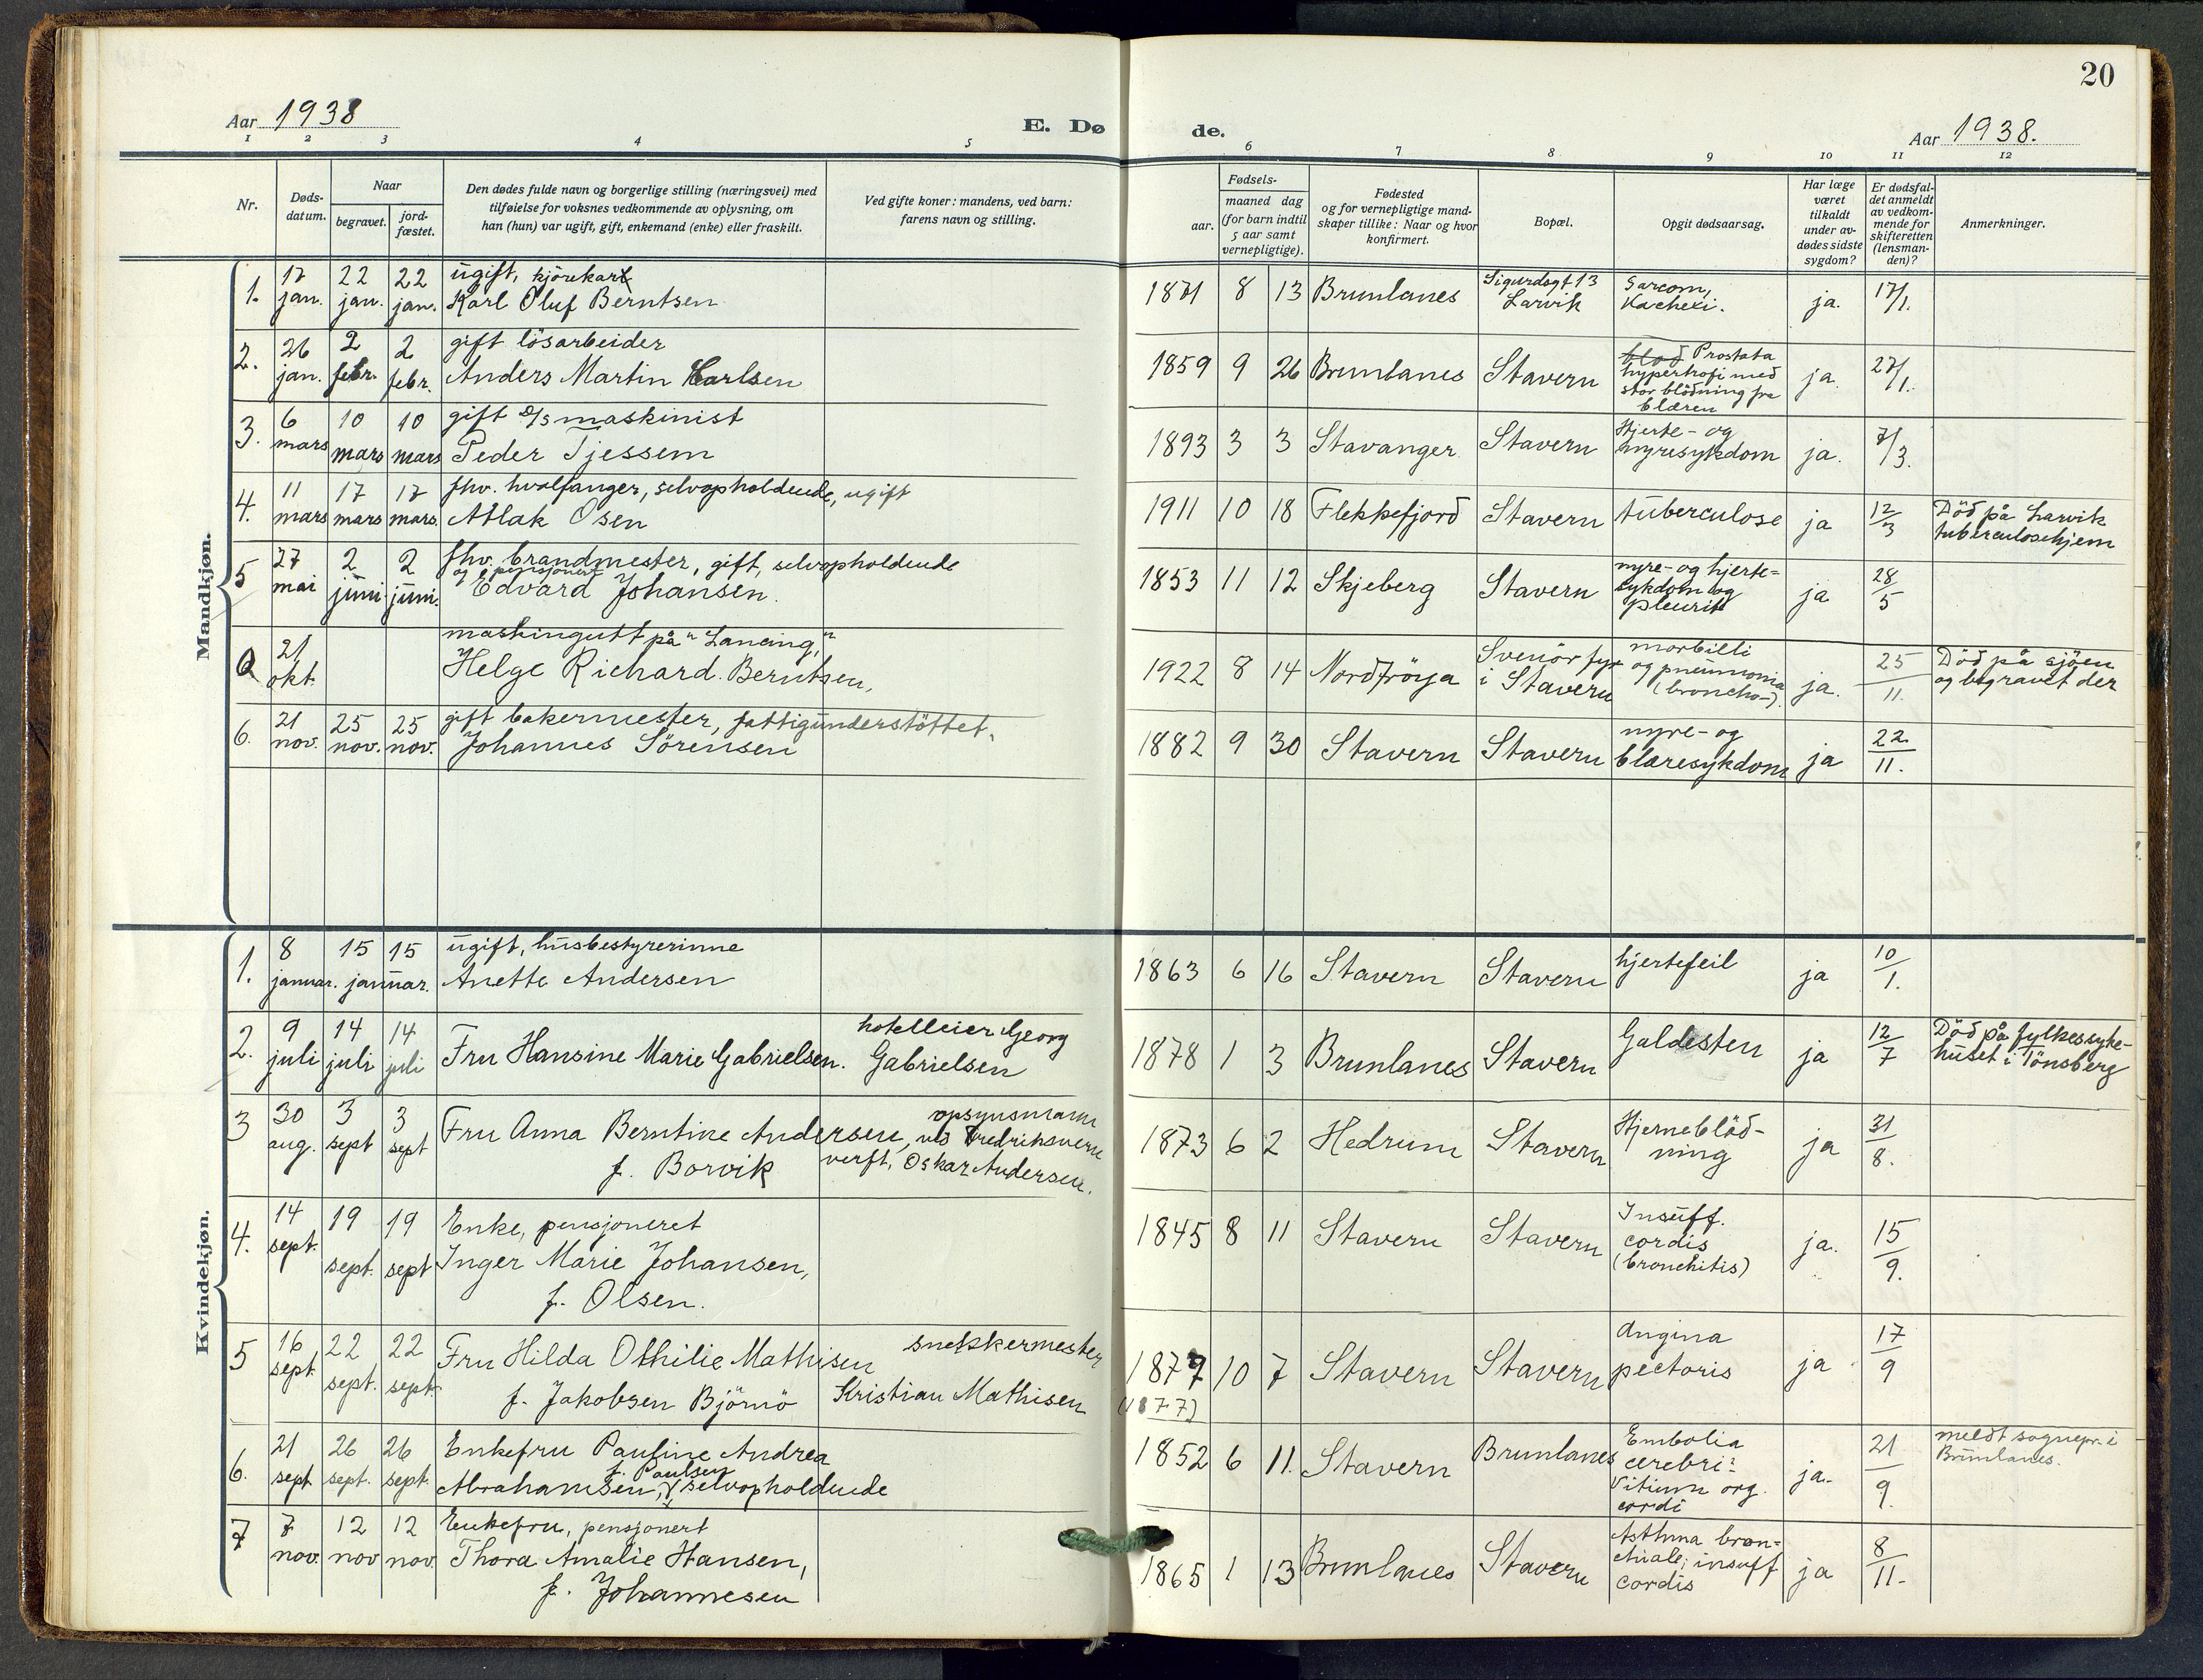 20
Aar 1938
E. Dø
de.
Aar 1938.
1 2 3 4 5 6 7 8 9 10 11 12
Nr.
Døds-
datum.
Naar
begravet.
jord-
fæstet.
Den dødes fulde navn og borgerlige stilling (næringsvei) med
tilføielse for voksnes vedkommende av oplysning, om
han (hun) var ugift, gift, enkemand (enke) eller fraskilt.
Ved gifte koner: mandens, ved barn:
farens navn og stilling.
Fødsels-
aar.
maaned dag
(for barn indtil
5 aar samt
vernepligtige).
Fødested
og for vernepligtige mand-
skaper tillike: Naar og hvor
konfirmert.
Bopæl.
Opgit dødsaarsag.
Har læge
været
tilkaldt
under av-
dødes sidste
sygdom?
Er dødsfal-
det anmeldt
av vedkom-
mende for
skifteretten
(lensman-
den)?
Anmerkninger.
Mandkjøn.
1. 17 jan. 22 jan. 22 jan.
ugift, kjörekar
Karl Oluf Berntsen
1871 8 13 Brunlanes
Sigurdsgt 13
Larvik
Sarcom,
Kachexi.
ja. 17/1.
2. 26 jan. 2 febr. 2 febr.
gift lösarbeider
Anders Martin Carlsen
1859 9 26 Brunlanes Stavern
blod Prostata
hypertrofi med
stor blödning fra
blæren
ja. 27/1.
3. 6 mars 10 mars 10 mars
gift D/S maskinist
Peder Tjessem
1893 3 3 Stavanger Stavern
Hjerte- og
nyresykdom
ja. 7/3.
4. 11 mars 17 mars 17 mars.
fhv. hvalfanger, selvopholdende, ugift
Atlak Osen
1911 10 18 Flekkefjord Stavern tuberculose ja 12/3
Död på Larvik
tuberculosehjem
5 27 mai 2 juni 2 juni.
fhv. brandmester, gift, selvopholdende
og pensjonert
Edvard Johansen.
1853 11 12 Skjeberg Stavern
nyre- og hjerte-
sykdom og
pleurit
ja 28/5
0 21 okt.
maskingutt på "Lancing"
Helge Richard Berntsen,
1922 8 14 Nordfröya
Svenör fyr
i Stavern
morbilli
og pneumonia
(broncho-)
ja. 25/11.
Död på sjöen
og begravet der
6. 21 nov. 25 nov. 25 nov.
gift bakermester, fattigunderstöttet.
Johannes Sörensen
1882 9 30 Stavern Stavern
nyre- og
blæresykdom
ja 22/11.
Kvindekjøn.
1. 8 januar. 15 15 januar.
ugift, husbestyrerinne
Anette Andersen
1863 6 16 Stavern Stavern hjertefeil ja 10/1.
2. 9 juli 14 juli 14 juli
Fru Hansine Marie Gabrielsen.
hotelleier Georg
Gabrielsen
1878 1 3 Brunlanes Stavern Galdesten ja 12/7
Död på fylkessyke-
huset i Tönsberg
3 30 aug. 3 sept 3 sept
Fru Anna Berntine Andersen,
f. Borvik
opsynsmann
ved Fredriksvern
verft, Oskar Andersen.
1873 6 2 Hedrum Stavern
Hjerneblöd-
ning
ja 31/8.
4. 14 sept. 19 sept. 19 sept
Enke, pensjoneret
Inger Marie Johansen,
f. Olsen.
1845 8 11 Stavern Stavern
Insuff.
cordis
(bronchitis)
ja. 15/9.
5 16 sept. 22 sept. 22 sept.
Fru Hilda Othilie Mathisen
f. Jakobsen Björnö
snekkermester
Kristian Mathisen
1877 10 7 Stavern Stavern
(1877)
Angina
pectoris
ja 17/9
6. 21 sept 26 sept. 26 sept.
Enkefru Pauline Andrea
f. Paulsen
Abrahamsen, selvopholdende
1852 6 11. Stavern Brunlanes
Embolia
cerebri:
Vitium org.
cordi
ja. 21/9.
meldt sognepr. i
Brunlanes.
7 7 nov. 12 nov 12 nov
Enkefru, pensjonert
Thora Amalie Hansen,
f. Johannesen
1865 1 13 Brunlanes Stavern
Asthma bron-
chiale; insuff
cordis
ja 8/11.